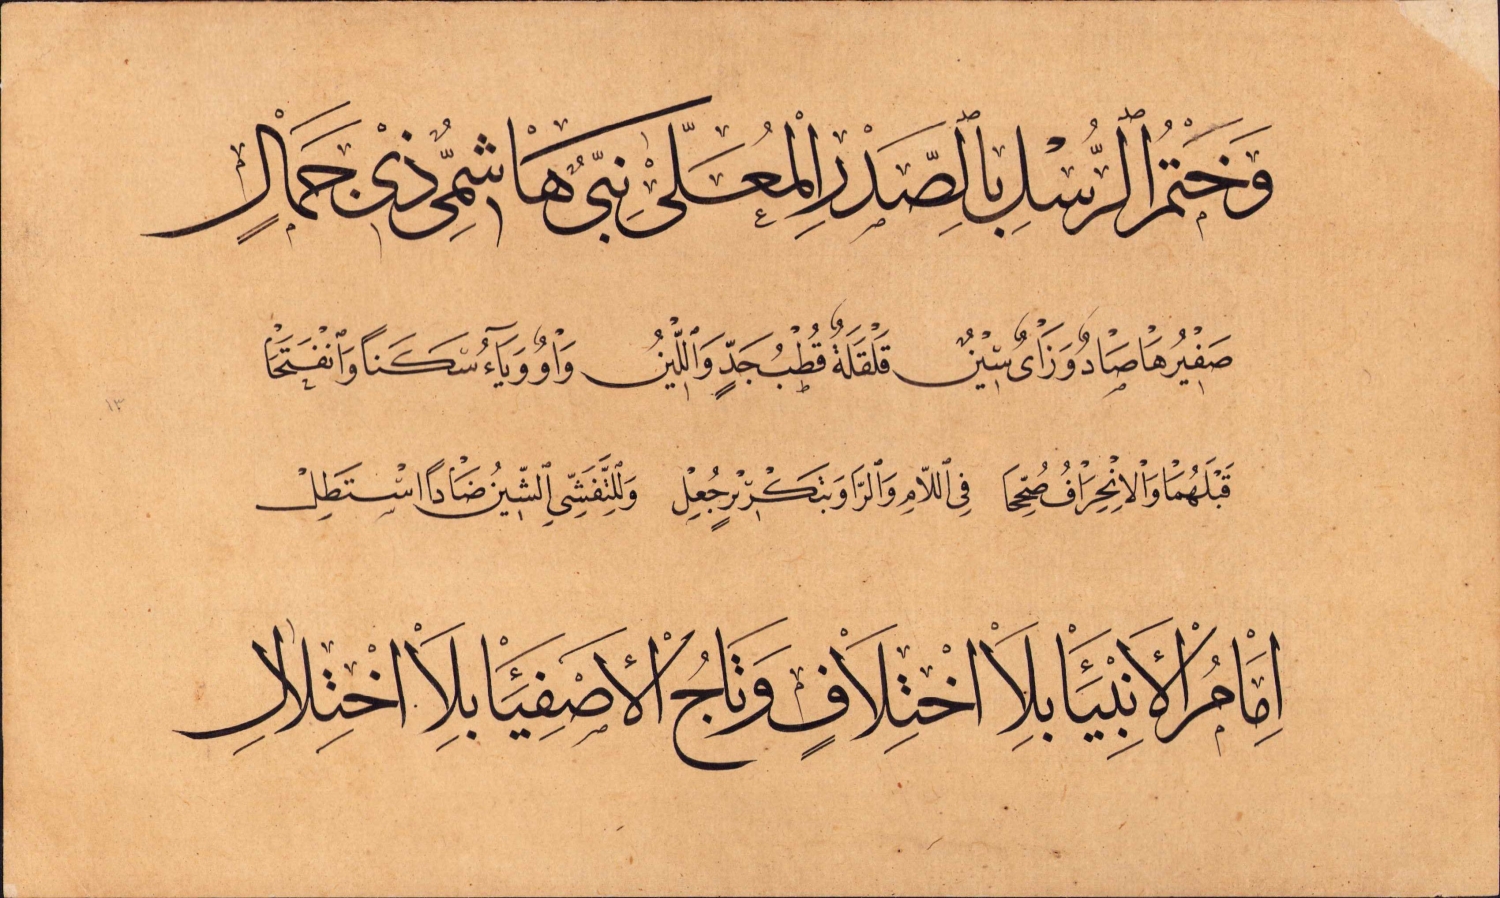 وَخَتْمُ ٱلرُّسْلِ بِٱلصَّدْرِ الْمُعَلّٰى نَبِىٌّ هَاشِمِىٌّ ذِىْ جَمَالٍ
صَفِيْرُهَا صَادٌ وَزَاىٌ سِيْنٌ قَلْقَلَةٌ قُطْبُ جَدٍّ وَٱللِّيْنُ وَاوٌ وَيَآءٌ سَكَنَا وَٱنْفَتَحَا
قَبْلَهُمَا وَالْاِنْحِرَافُ صُحِّحَا فِى ٱللَّامِ وَٱلرَّا وَبِتَكْرِيْرٍ جُعِلْ وَلِلتَّفَشِّى ٱلشِّيْنُ ضَادًا اسْتَطِلْ
اِمَامُ الْأَنْبِيَا بِلَا اخْتِلَافٍ وَتَاجُ الْأَصْفِيَا بِلَا اخْتِلَالِ
١٣